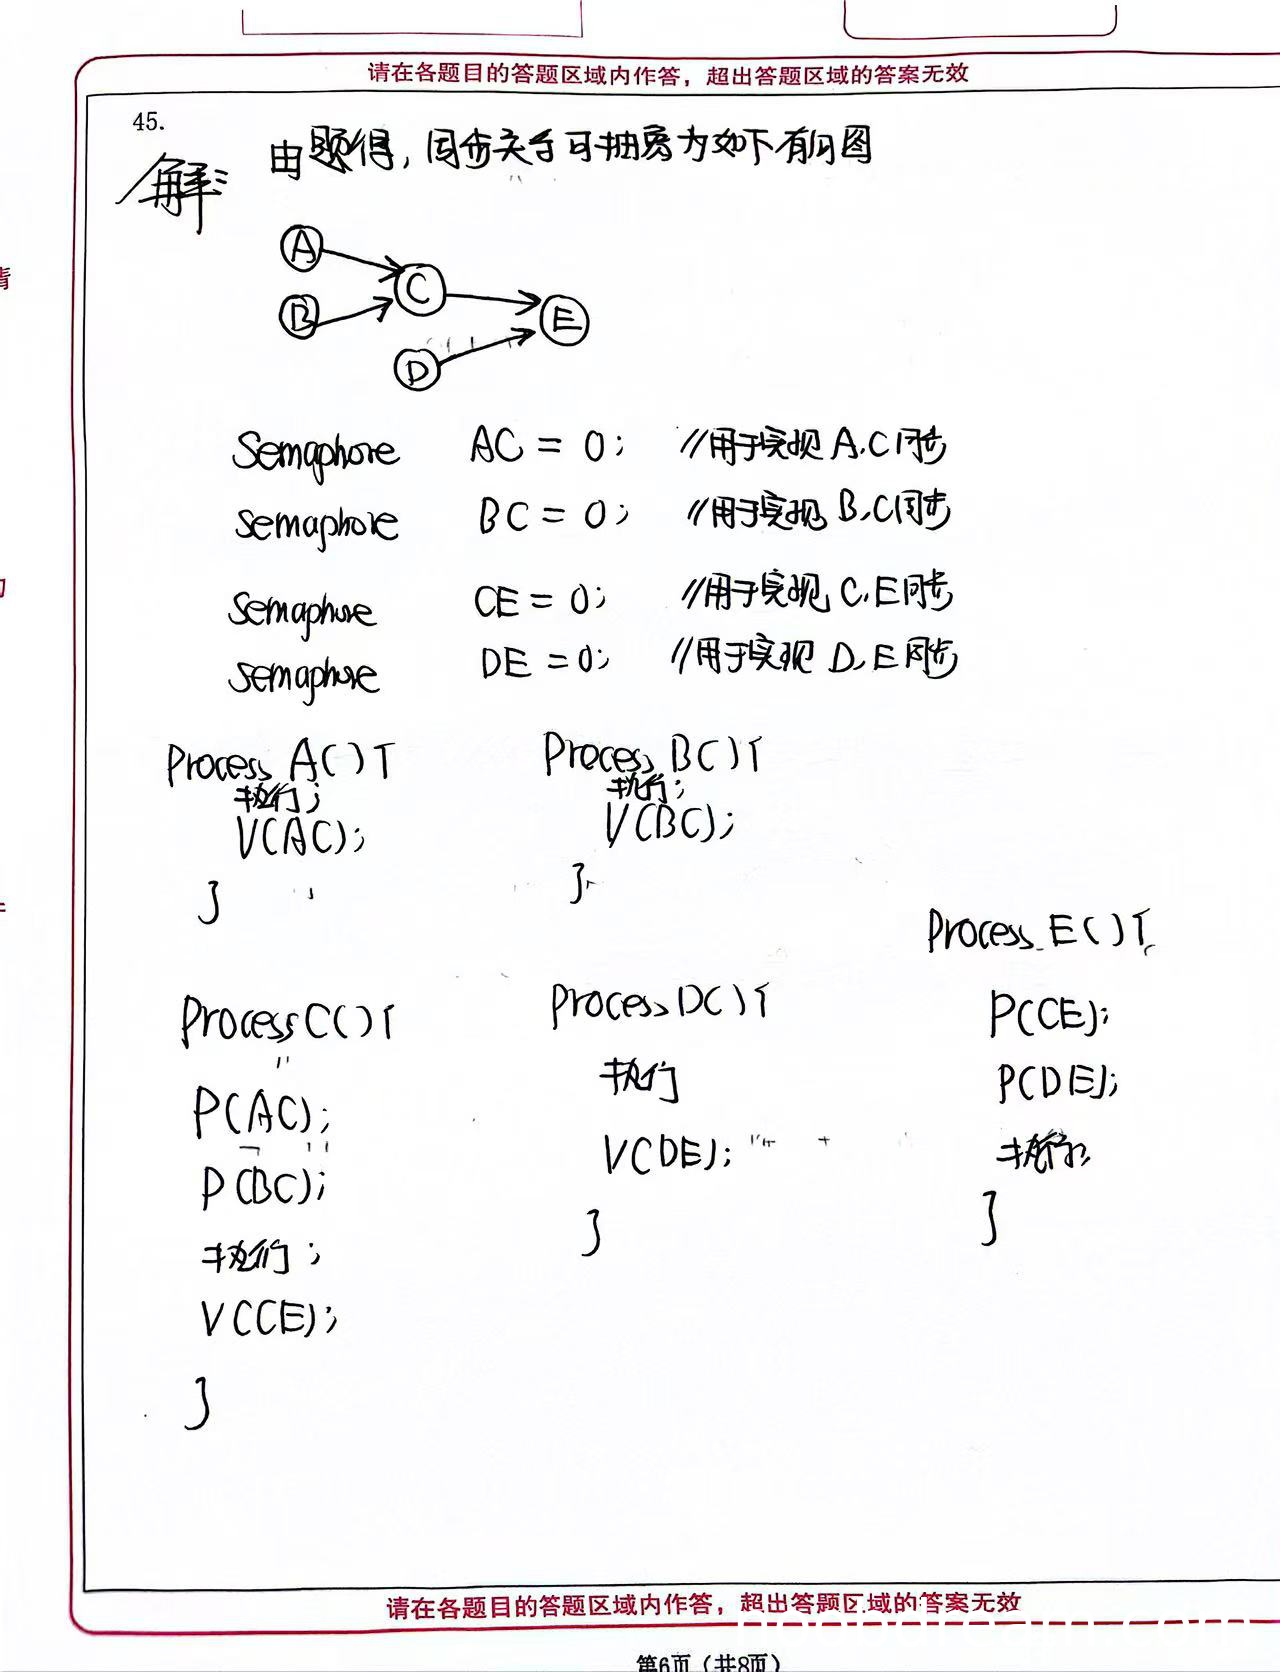 请在各题目的答题区域内作答，超出答题区域的答案无效
45.
解: 由题得，同步关系可抽离为如下有向图
A
B
C
D
E
Semaphore AC = 0; //用于实现 A,C同步
Semaphore BC = 0; //用于实现 B,C同步
Semaphore CE = 0; //用于实现 C,E同步
Semaphore DE = 0; //用于实现 D,E同步
Process A(){
执行;
V(AC);
}
Process B(){
执行;
V(BC);
}
Process C(){
P(AC);
P(BC);
执行;
V(CE);
}
Process D(){
执行
V(DE);
}
Process E(){
P(CE);
P(DE);
执行;
}
请在各题目的答题区域内作答，超出答题区域的答案无效
第6页（共8页）